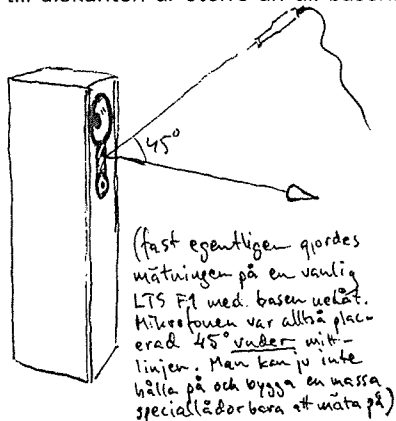 till diskanten är större än till basen
45°
(fast egentligen gjordes
mätningen på en vanlig
LTS F1 med basen nedåt.
Mikrofonen var alltså plac-
erad 45° under mitt-
linjen. Man kan ju inte
hålla på och bygga en massa
speciallådor bara att mäta på)